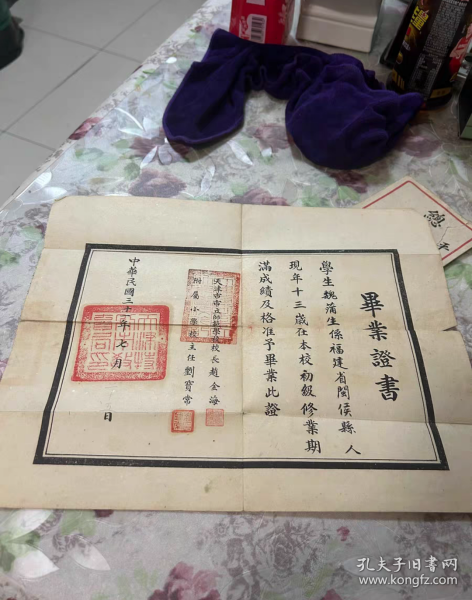 畢業證書
學生魏蒲生係福建省閩侯縣人
現年十三歲在本校初級修業期
滿成績及格准予畢業此證
天津市市立師範學校校長趙金海
附屬小學校主任劉寶常
中華民國三十一年七月 日
孔夫子旧书网
www.kongfz.com